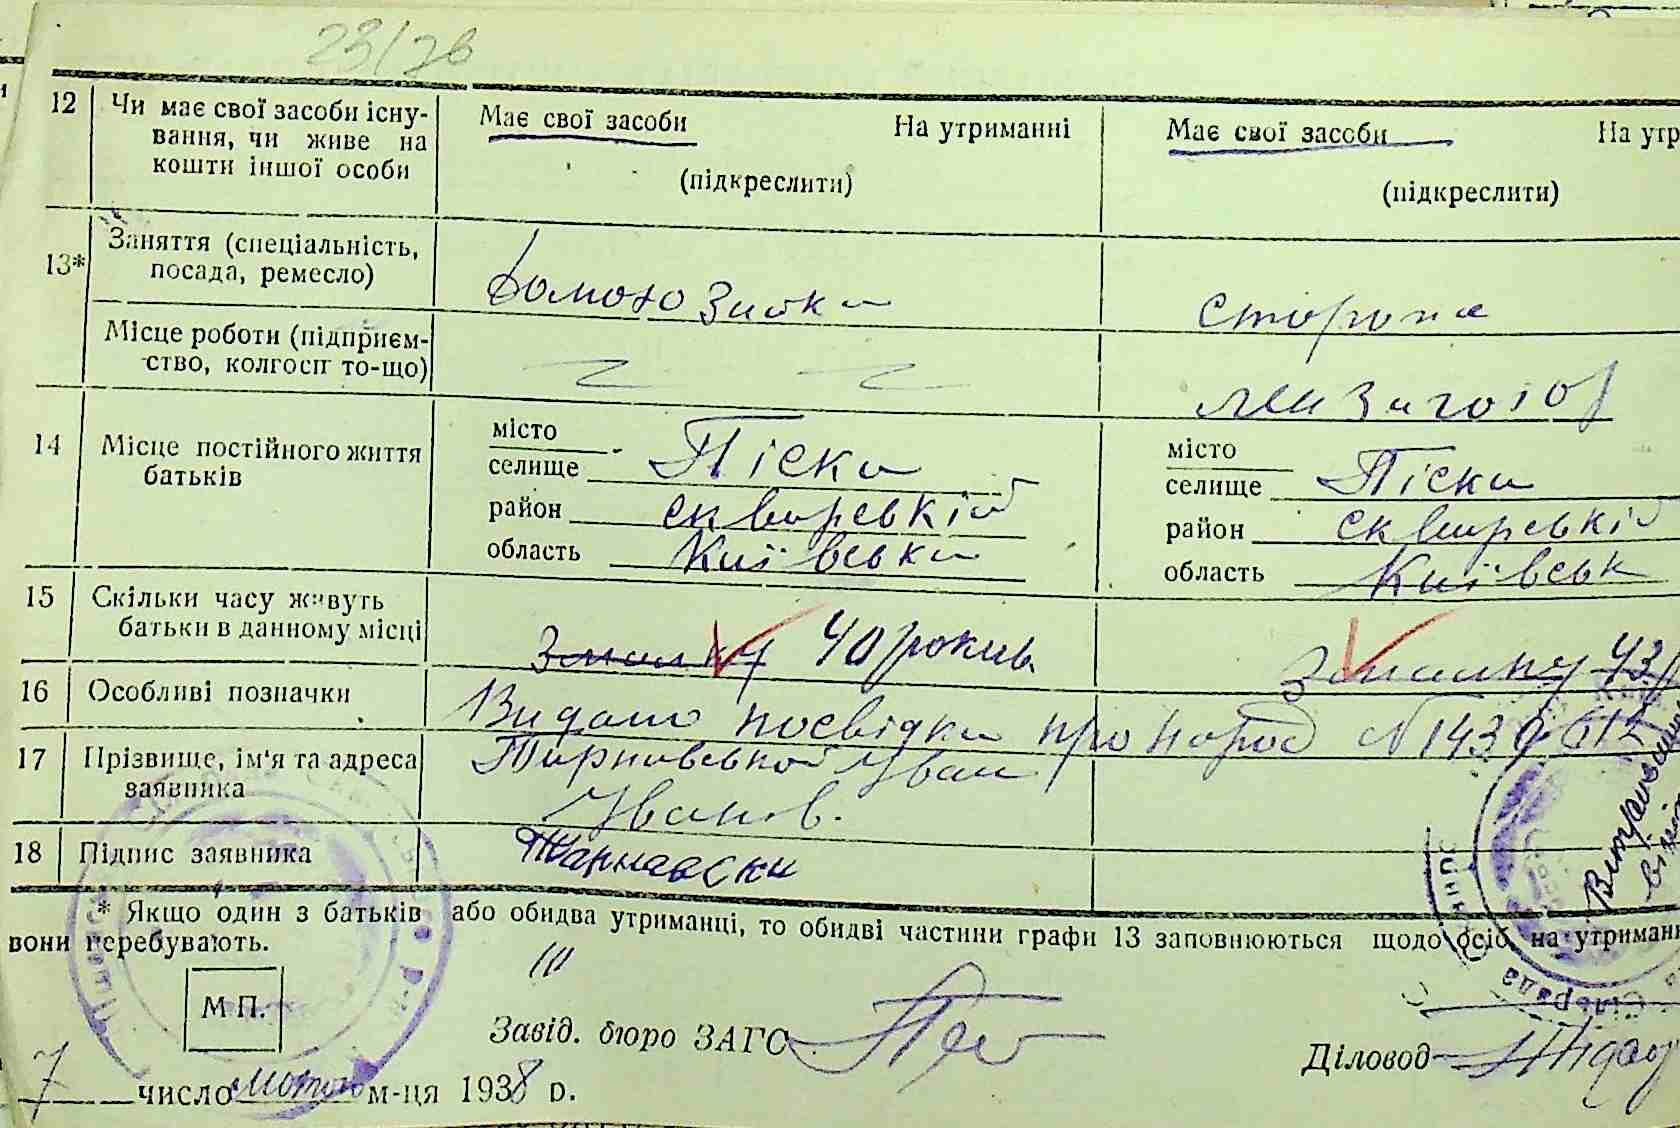 23/76
12 Чи має свої засоби існу-
вання, чи живе на
кошти іншої особи
Має свої засоби На утриманні
(підкреслити)
Має свої засоби На утр
(підкреслити)
13* Заняття (спеціальність,
посада, ремесло)
Домохозяйка
сторож
Місце роботи (підприєм-
ство, колгосп то-що)
14 Місце постійного життя
батьків
місто
селище Піски
район сквирський
область Київська
місто
селище Піски
район сквирський
область Київськ
15 Скільки часу живуть
батьки в данному місці
Змалку 40 рокив
Змалку 43
16 Особливі позначки
Видано посвідку про народ №
17 Прізвище, ім'я та адреса
заявника
Іван
Іванов.
18 Підпис заявника
Тарнавски
* Якщо один з батьків або обидва утриманці, то обидві частини графи 13 заповнюються щодо осіб, на утриман
вони перебувають.
М П.
Завід. бюро ЗАГС
Діловод
7 число лютого м-ця 1938 р.
сільрада